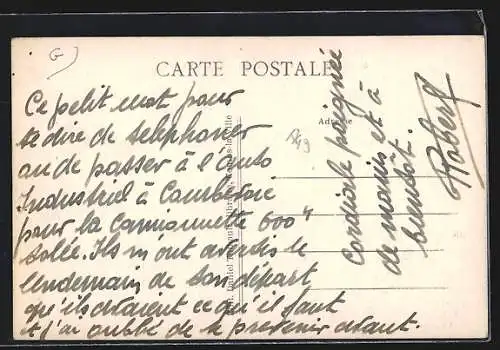 CARTE POSTALE
Adresse
Ce petit mot pour
te dire de telephoner
ou de passer à l'auto
Industriel à Courbevoie
pour la camionnette 600 "
Ils m'ont avertis le
lendemain de ton départ
qu'ils avaient ce qu'il faut
et j'ai oublié de te prevenir avant.
Cordiale poignée
de mains et à
bientôt.
Robert